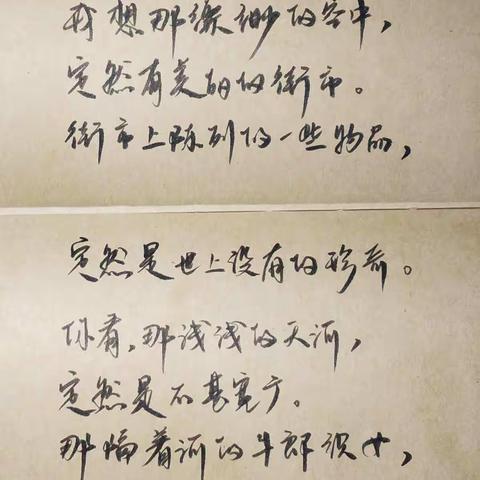 我想那缥缈的空中，
定然有美丽的街市。
街市上陈列的一些物品，
定然是世上没有的珍奇。
你看，那浅浅的天河，
定然是不甚宽广。
那隔着河的牛郎织女，